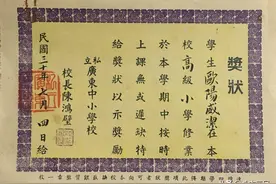 獎狀
學生歐陽威潔在本
校高級小學修業
於本學期中按時
上課無或遲誤特
給獎狀以示獎勵
私立廣東中小學校
校長陳鴻璧
民國三十年月四日給